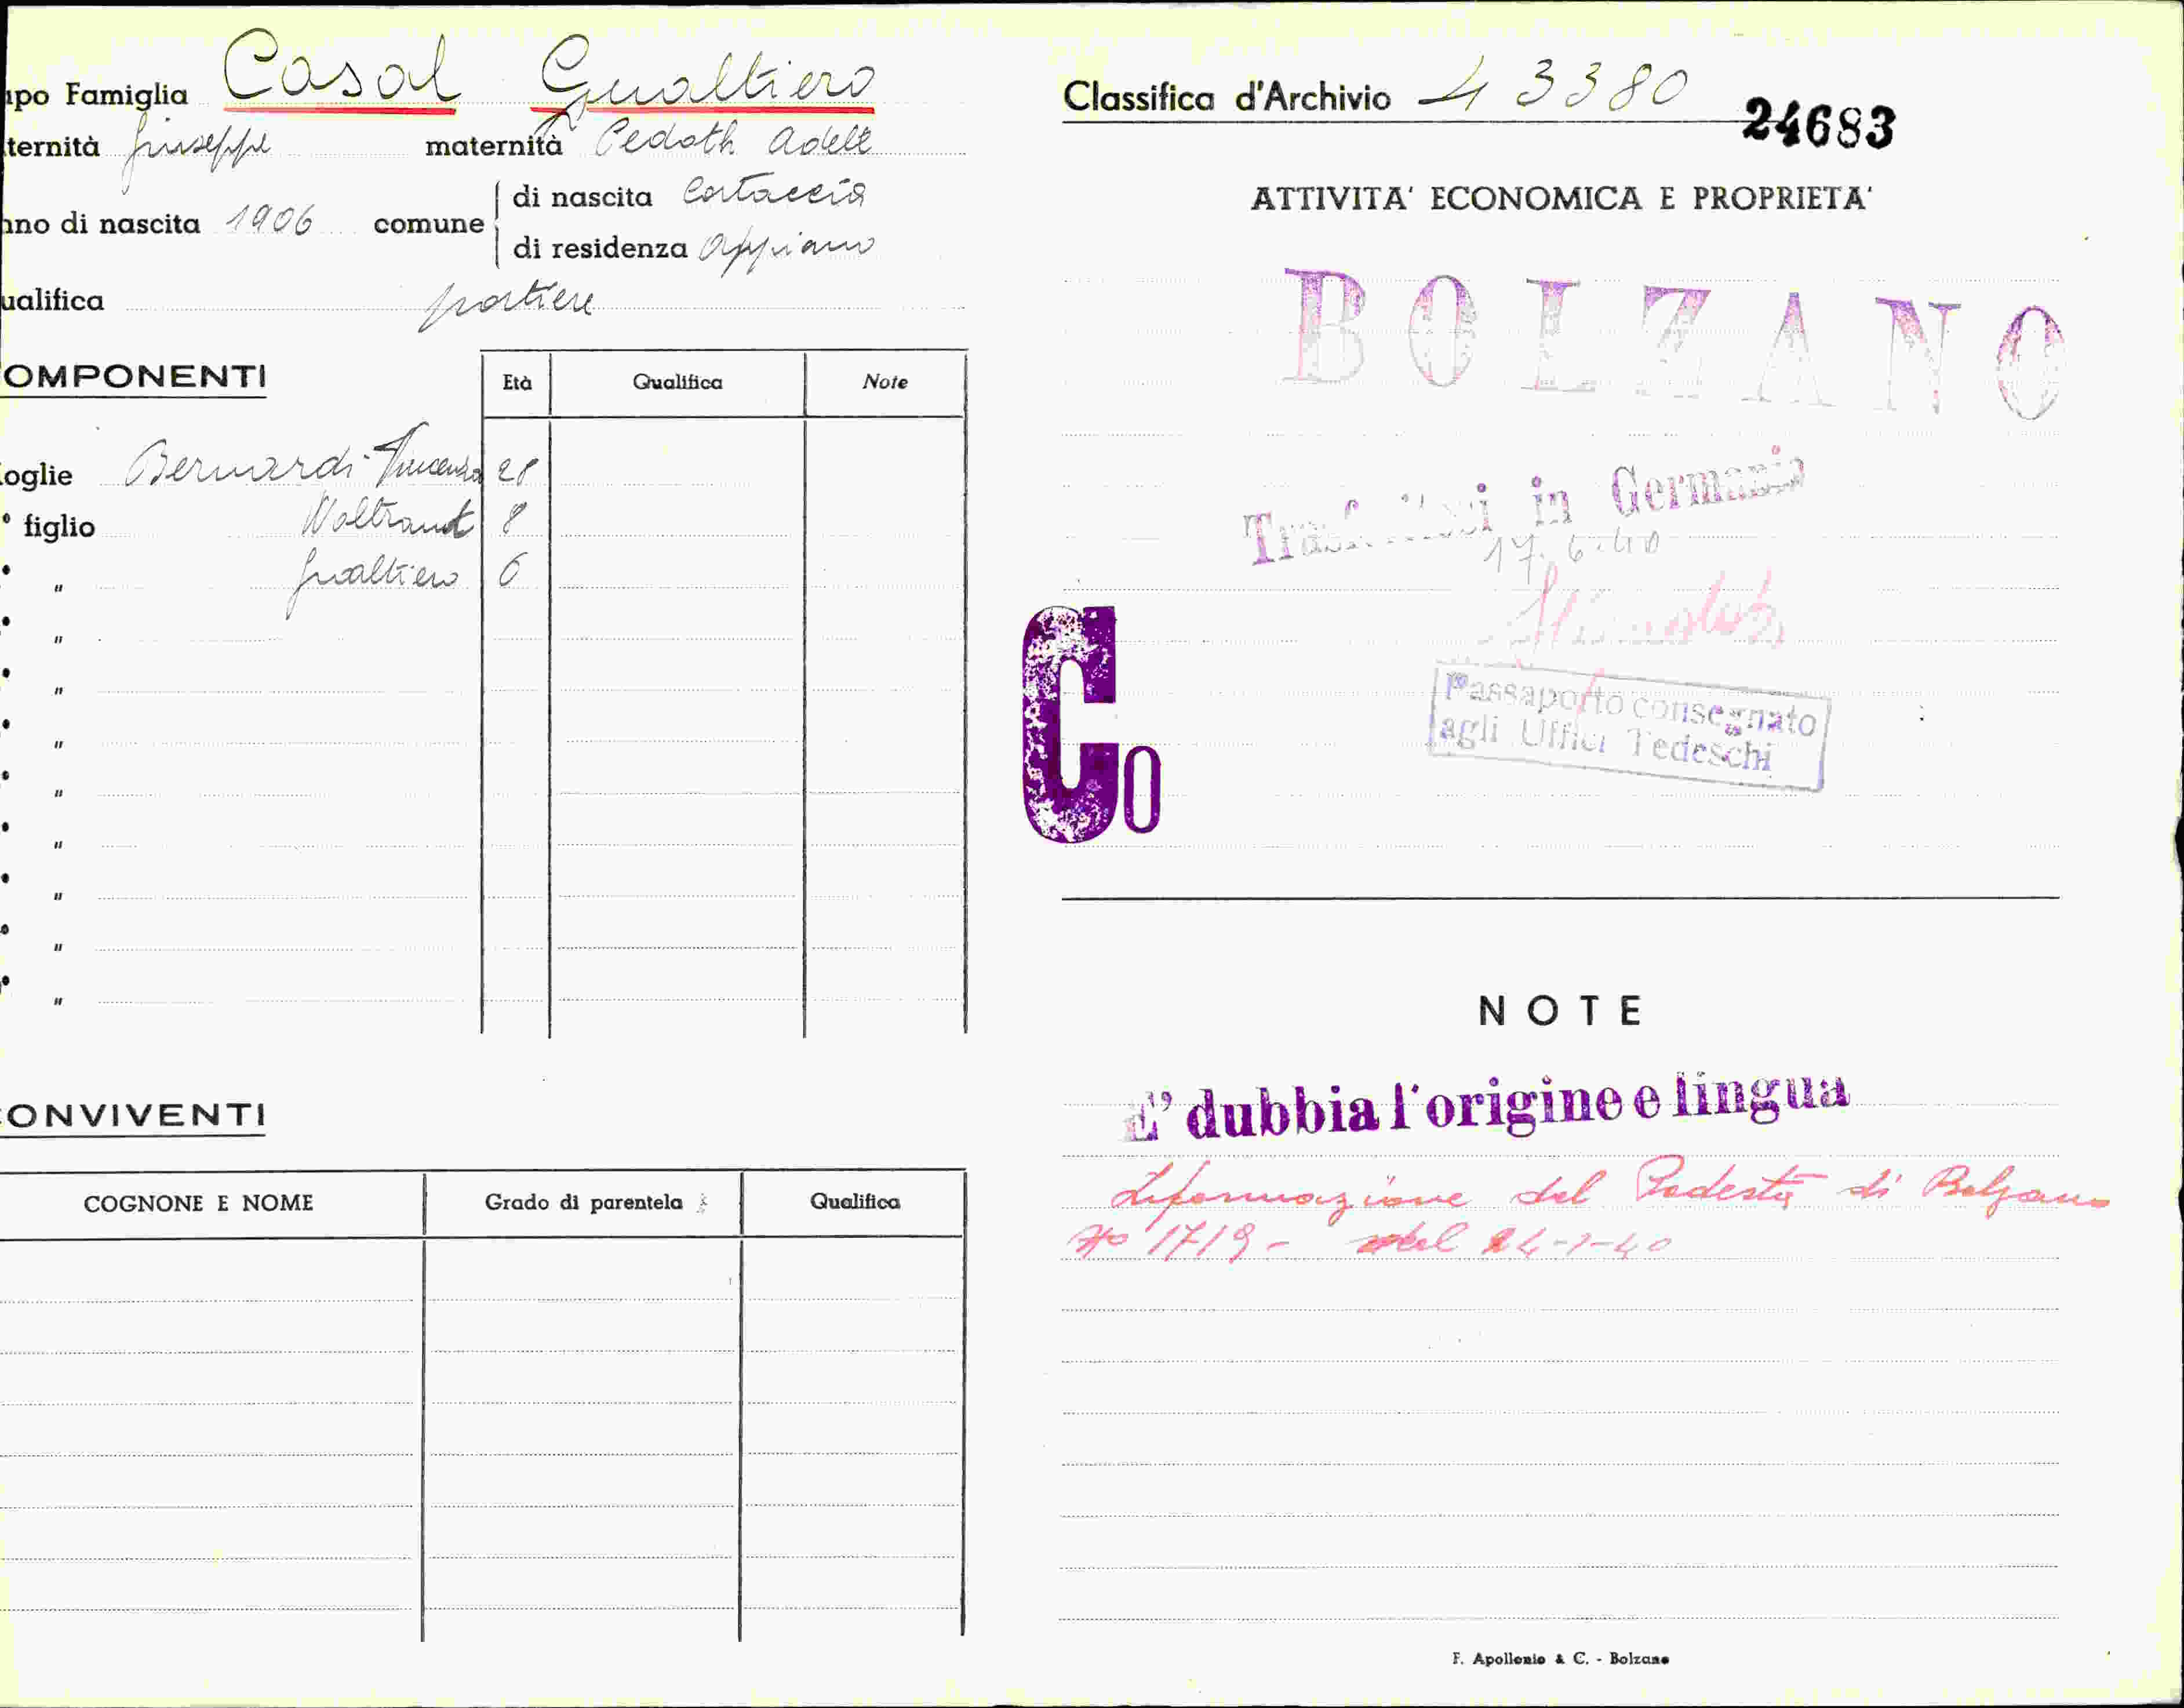 apo Famiglia Casal Gualtiero
ternità Giuseppe maternità Pedoth Adele
nno di nascita 1906 comune di nascita Cortaccia
di residenza Appiano
ualifica portiere
OMPONENTI Età Qualifica Note
oglie Bernardi Vincenza 28
° figlio Waltraut 8
" Gualtiero 6
"
"
"
"
"
"
"
"
ONVIVENTI
COGNONE E NOME Grado di parentela Qualifica
Classifica d'Archivio 43380
24683
ATTIVITA' ECONOMICA E PROPRIETA'
BOLZANO
in Germania
17.6.40
Passaporto consegnato
agli Uffici Tedeschi
Co
NOTE
E' dubbia l'origine e lingua
Informazione del Podestà di Bolzano
No 1719 - del 24-1-40
F. Apollonio & C. - Bolzano